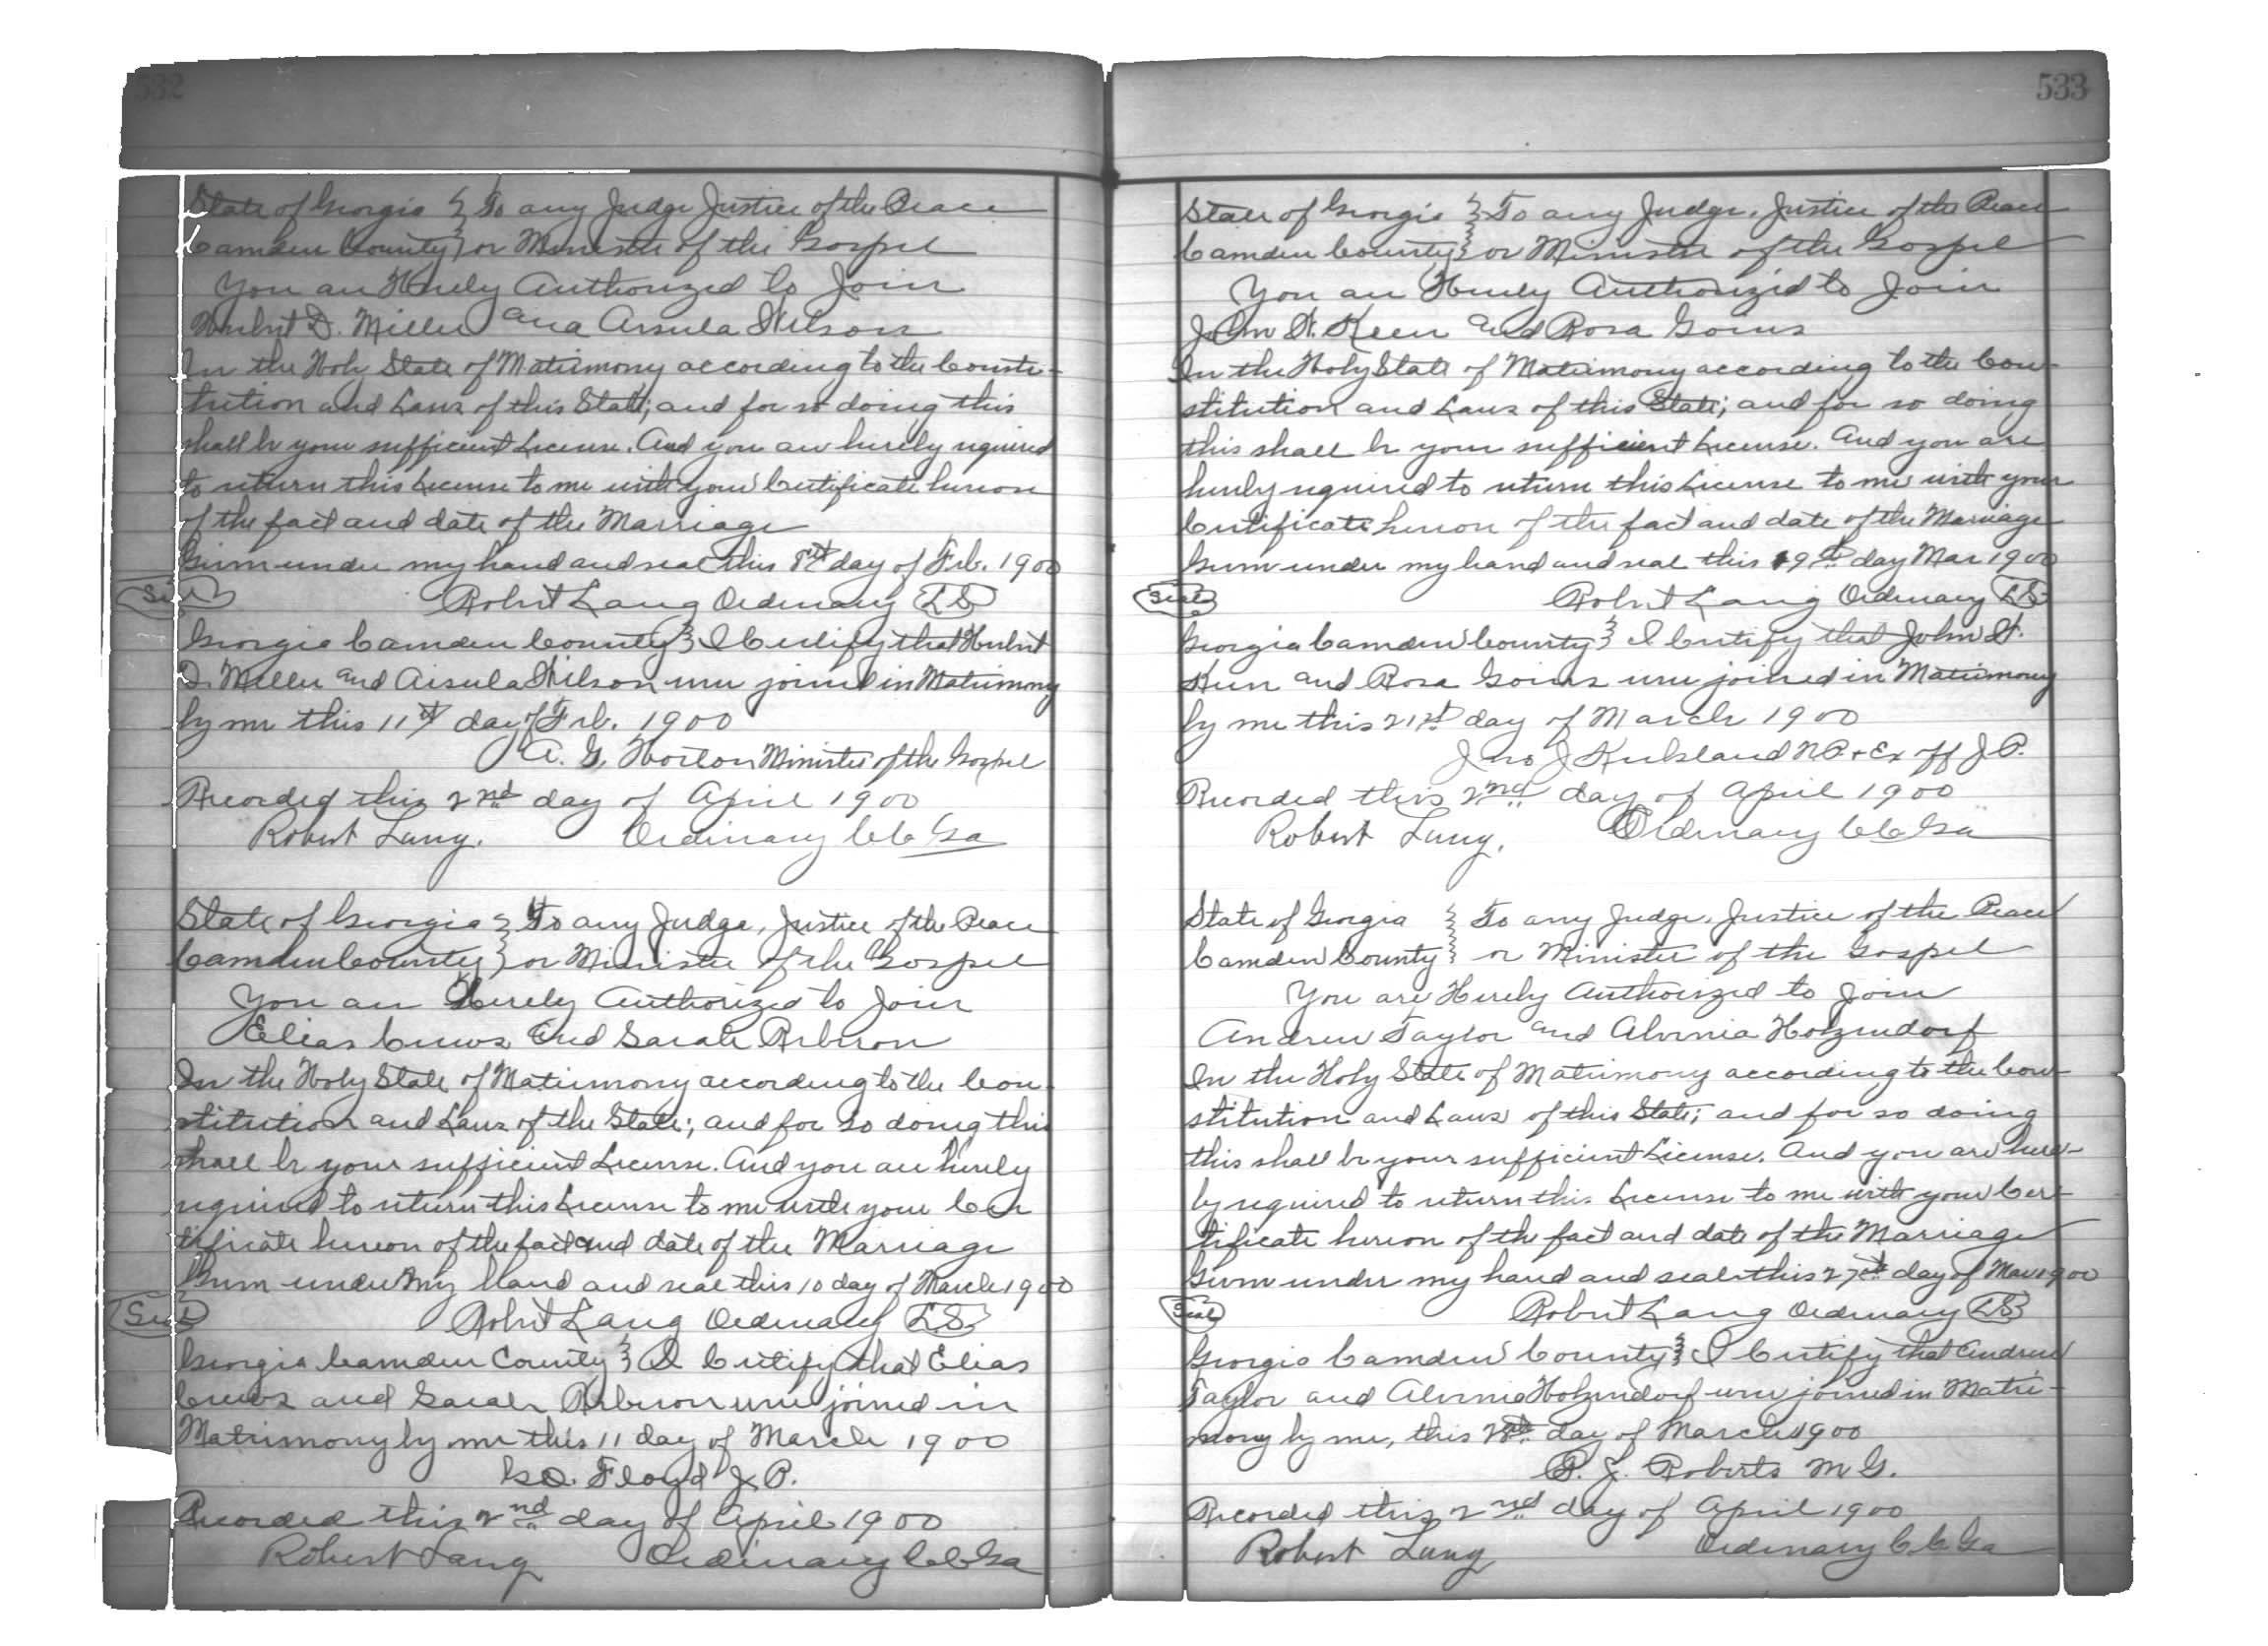 532
State of Georgia } To any Judge Justice of the Peace
Camden County } or Minister of the Gospel
You are Hereby Authorized to Join
Herbert D. Miller and Arsula Wilson
In the Holy State of Matrimony according to the Consti-
tution and Laws of this State; and for so doing this
shall be your sufficient License. And you are hereby required
to return this License to me with your Certificate hereon
of the fact and date of the Marriage
Given under my hand and seal this 8th day of Feb. 1900
Seal Robert Lang Ordinary L.S.
Georgia Camden County } I Certify that Herbert
D. Miller and Arsula Wilson were joined in Matrimony
by me this 11th day of Feb. 1900
A. G. Horton Minister of the Gospel
Recorded this 2nd day of April 1900
Robert Lang. Ordinary CC Ga
State of Georgia } To any Judge, Justice of the Peace
Camden County } or Minister of the Gospel
You are Hereby Authorized to Join
Elias Crews and Sarah
In the Holy State of Matrimony according to the Con-
stitution and Laws of the State; and for so doing this
shall be your sufficient License. And you are hereby
required to return this License to me with your Cer
tificate hereon of the fact and date of the Marriage
Given under my hand and seal this 10 day of March 1900
Seal Robert Lang Ordinary L.S.
Georgia Camden County } I Certify that Elias
Crews and Sarah were joined in
Matrimony by me this 11 day of March 1900
Floyd J.P.
Recorded this 2nd day of April 1900
Robert Lang Ordinary CC Ga
533
State of Georgia } To any Judge, Justice of the Peace
Camden County } or Minister of the Gospel
You are Hereby Authorized to Join
John W. Keen and Rosa Goins
In the Holy State of Matrimony according to the Con-
stitution and Laws of this State; and for so doing
this shall be your sufficient License. And you are
hereby required to return this License to me with your
Certificate hereon of the fact and date of the Marriage
Given under my hand and seal this 19th day Mar 1900
Seal Robert Lang Ordinary L.S.
Georgia Camden County } I Certify that John W.
Keen and Rosa Goins were joined in Matrimony
by me this 21st day of March 1900
Jno J Kirkland N.P. & Ex off J.P.
Recorded this 2nd day of April 1900
Robert Lang. Ordinary CC Ga
State of Georgia } To any Judge, Justice of the Peace
Camden County } or Minister of the Gospel
You are Hereby Authorized to Join
Andrew Taylor and Alvinia Holzendorf
In the Holy State of Matrimony according to the Con-
stitution and Laws of this State; and for so doing
this shall be your sufficient License. And you are here-
by required to return this License to me with your Cer-
tificate hereon of the fact and date of the Marriage
Given under my hand and seal this 27th day of Mar 1900
Seal Robert Lang Ordinary L.S.
Georgia Camden County } I Certify that Andrew
Taylor and Alvinia Holzendorf were joined in Matri-
mony by me, this 28th day of March 1900
P. J. Roberts M G.
Recorded this 2nd day of April 1900
Robert Lang Ordinary C.C. Ga